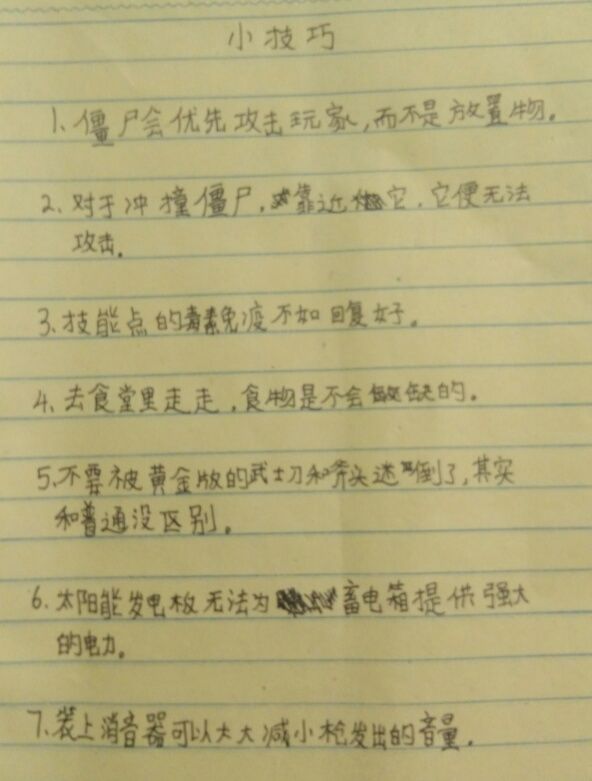 小技巧
1、僵尸会优先攻击玩家,而不是放置物。
2、对于冲撞僵尸,靠近它,它便无法
攻击。
3、技能点的毒素免疫不如回复好。
4、去食堂里走走,食物是不会缺的。
5、不要被黄金版的武士刀和斧头迷倒了,其实
和普通没区别。
6、太阳能发电板无法为畜电箱提供强大
的电力。
7、装上消音器可以大大减小枪发出的音量。